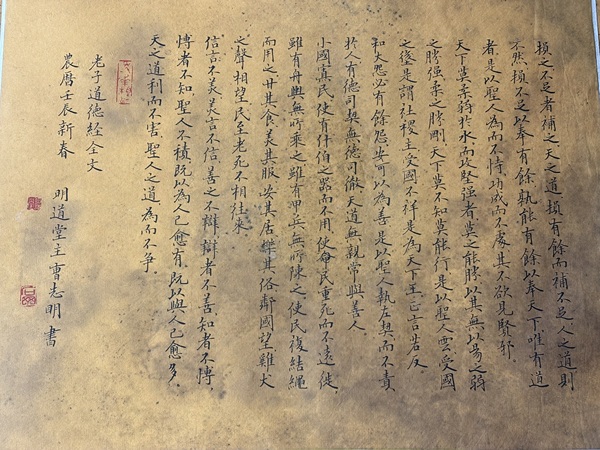 損之不足者補之天之道損有餘而補不足人之道則
不然損不足以奉有餘孰能有餘以奉天下唯有道
者是以聖人為而不恃功成而不處其不欲見賢邪
天下莫柔弱於水而攻堅強者莫之能勝以其無以易之弱
之勝強柔之勝剛天下莫不知莫能行是以聖人雲受國
之是謂社稷主受國不祥是為天下王正言若反
和大怨必有餘怨安可以為善是以聖人執左契而不責
於人有德司契無德司徹天道無親常與善人
小國寡民使有什伯之器而不用使民重死而不遠徙
雖有舟輿無所乘之雖有甲兵無所陳之使民復結繩
而用之甘其食美其服安其居樂其俗鄰國望雞犬
之聲相望民至老死不相往來
信言不美美言不信善之不辯辯者不善知者不博
博者不知聖人不積既以為人己愈有既以與人己愈多
天之道利而不害聖人之道為而不爭
老子道德經全文
農曆壬辰新春
明道堂主曹志明書